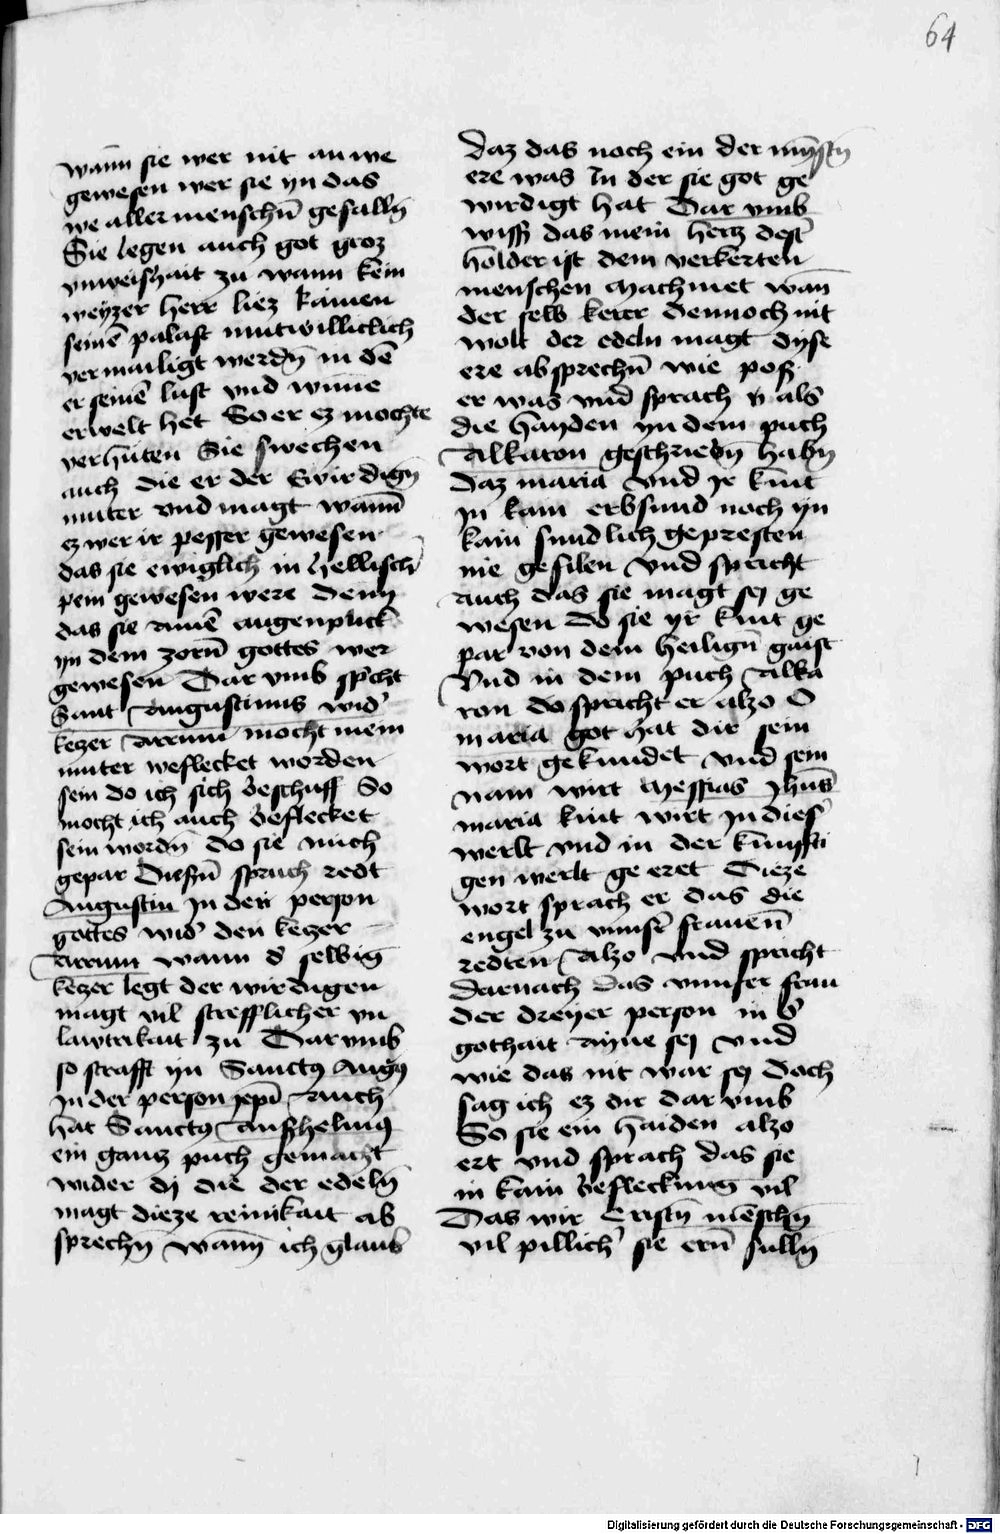 64
wann sie wer nit an we
gewesen wer sie yn das
we aller menschn̄ gefalln̄
Sie legen auch got groz
vnweishait zu wann kein
weyzer herr liez kainen
seinē palast mutwilliclich
vermailigt werdn̄ in dē
er seinē lust vnd wūne
erwelt het So er ez mochte
verhüten Sie swechen
auch die er der Swirdign̄
muter vnd magt wann̄
ez wer ir pesser gewesen
das sie ewiglich in hellisch̄
pein gewesen were denn
das sie ainē augenplick
yn dem zorn̄ gottes wer
gewesen Dar vmb sp̄cht
Sant Augustinus wid̄
kezer Arrium mocht mein
muter weflecket worden
sein do ich sich beschuff So
mocht ich auch beflecket
sein wordn̄ do sie mich
gepar Diesn̄ spruch redt
Augustin In der person
gottes wid̄ den kezer
Arrium wann d̄ selbig
kezer legt der wirdigen
magt vil strefflicher vn
lawtrikait zu Dar vmb
so strafft yn Sanctus Augus
In der person xp̄i Auch
hat Sanctus Anshelmus
ein gantz puch gemacht
wider dj die der edeln̄
magt dieze reinikait ab
sprechn̄ wann̄ ich glaub
Daz das noch ein der mynstn̄
ere was In der sie got ge
wirdigt hat Dar vmb
wiss das mein hertz dest̄
holder ist dem verkerten
menschen Machmet wan̄
der selb kezer dennoch nit
wolt der edeln magt dyse
ere absprechn̄ wie poß
er was vnd sprach als
die hayden yn dem puch
Alkaron geschriebn̄ habn̄
Daz maria vnd Ir kint
In kain erbsund noch yn
kain sundlich gepresten
nie gefilen Vnd spricht
auch das sie magt sej ge
wesen do sie yr kint ge
par von dem heilign̄ gaist
Vnd in dem puch Alka
ron do spricht er alzo O
maria got hat dir sein
wort gekundet vnd sein
nam wirt Messias Jhūs
maria kint wirt In dies̄
werlt vnd in der kunffti
gen werlt ge eret Dieze
wort sprach er das die
engel zu vnnsr̄ frauen̄
redten Alzo vnd spricht
Darnach Das vnnser frau
der dreyer person in d̄
gothait Ayne sej vnd
wie das nit war sej Doch
sag ich ez dir dar vmb
So sie ein haiden alzo
ert vnd sprach das sie
in kain befleckung vil
Das wir Cristn̄ mēschn̄
vil pillich̄ sie ern̄ sulln̄
Digitalisierung gefördert durch die Deutsche Forschungsgemeinschaft - DFG